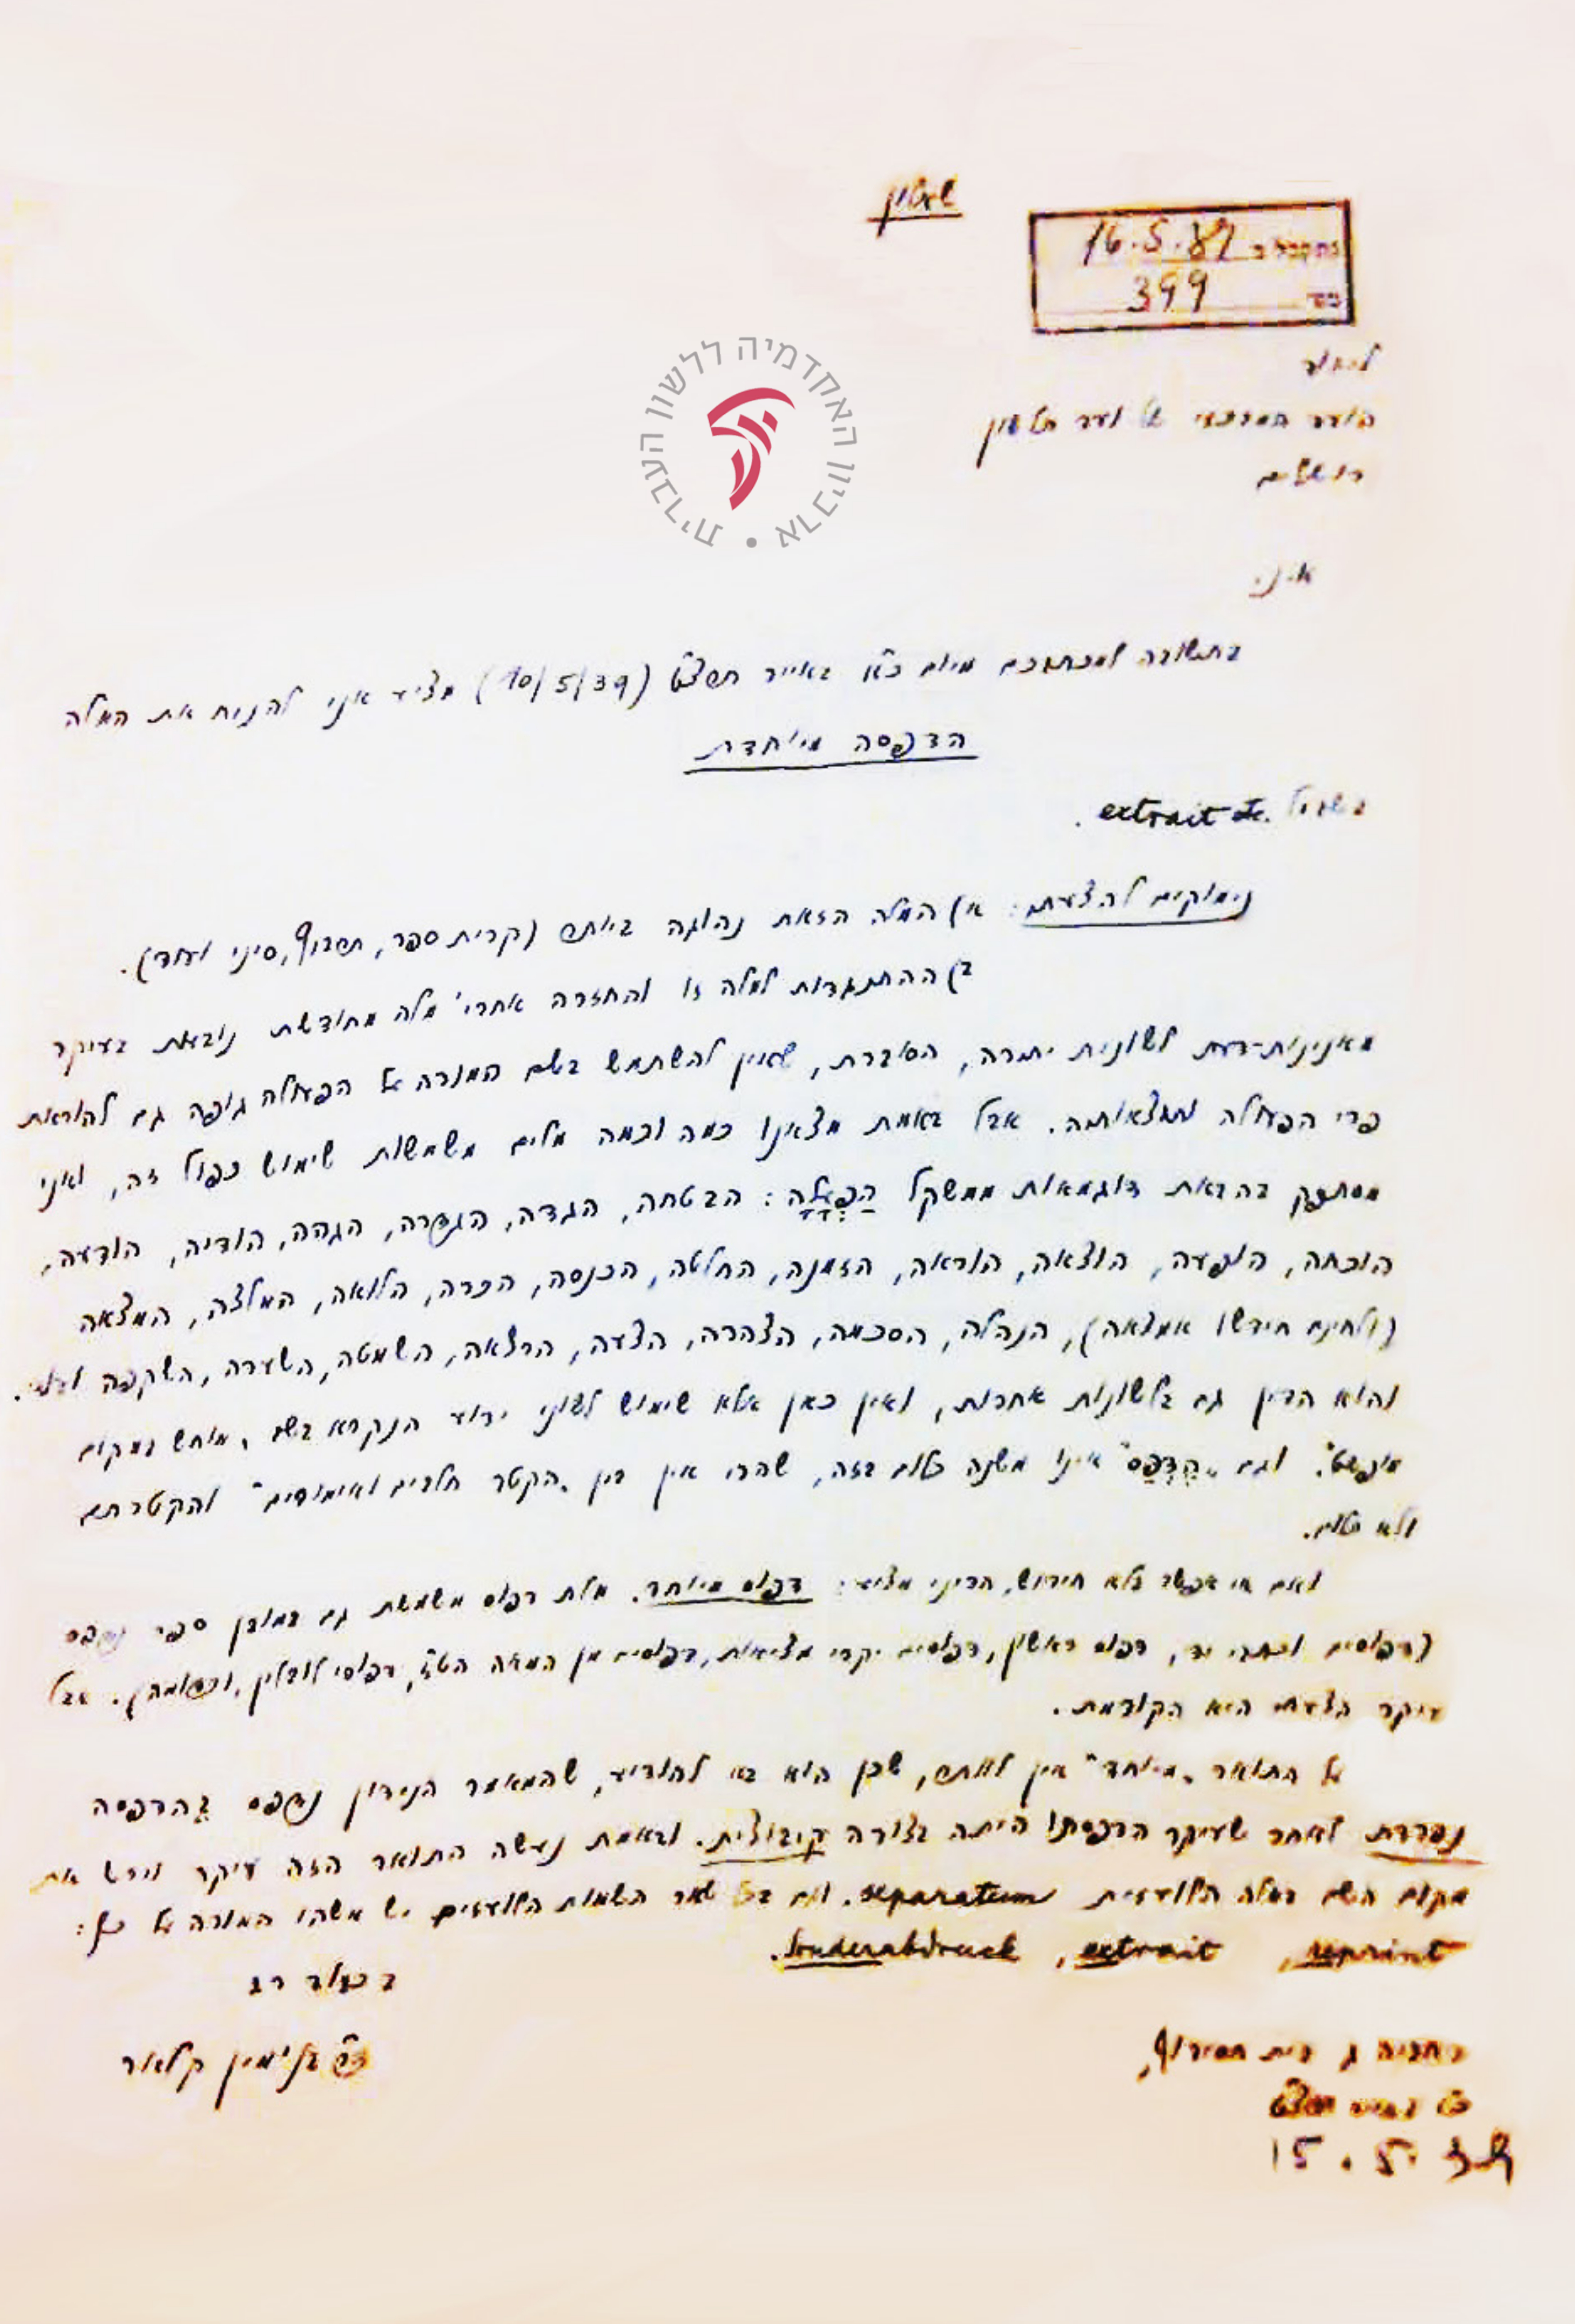 שעטון
נתקבל ב 16.5.39
מס' 399
האקדמיה ללשון העברית • ארכיון
לכבוד
הועד המרכזי של ועד הלשון
ירושלים
א.נ.
בתשובה למכתבכם מיום כ"א באייר תרצ"ט (10/5/39) מציע אני להניח את המלה
הדפסה מיוחדת
בשביל extrait.
נימוקים להצעתי: א) המלה הזאת נהוגה ביותר (קרית ספר, תרביץ, סיני ועוד).
ב) ההתנגדות למלה זו והחזרה אחרי מלה מחודשת נובעת בעיקר
מאנינות-דעת לשונית יתרה, הסוברת, שאין להשתמש בשם המורה על הפעולה גופה גם להוראת
פרי הפעולה ותוצאותיה. אבל באמת מצאנו כמה וכמה מלים משמשות שימוש כפול זה, ואני
מסתפק בהבאת דוגמאות ממשקל הַפְעָלָה: הבטחה, הגדה, הגזרה, הגהה, הודיה, הודעה,
הוכחה, הופעה, הוצאה, הוראה, הזמנה, החלטה, הכנסה, הכרה, הלואה, המלצה, המצאה
(ולחינם חידשו אמצאה), הנהלה, הסכמה, הצהרה, הצעה, הרצאה, השמטה, השערה, השקפה ועוד.
והוא הדין גם בלשונות אחרות, ואין כאן אלא שימוש לשוני ידוע הנקרא בשם „מוחש במקום
מופשט". וגם „הֶדְפֵּס" אינו משנה כלום בזה, שהרי אין בין „הקטר חלבים ואימורים" והקטרתם
ולא כלום.
ואם אי אפשר בלא חידוש, הריני מציע: דפוס מיוחד. מלת דפוס משמשת גם במובן ספר נדפס
(דפוסים וכתבי יד, דפוס ראשון, דפוסים יקרי מציאות, דפוסים מן המאה הט"ז, דפוסי לובלין, וכדומה). אבל
עיקר הצעתי היא הקודמת.
על התואר „מיוחד" אין לוותר, שכן הוא בא להודיע, שהמאמר הנידון נדפס בהדפסה
נפרדת לאחר שעיקר הדפסתו היתה בצורה קיבוצית. ובאמת נעשה התואר הזה עיקר וירש את
מקום השם במלה הלועזית separatum. וגם בכל שאר השמות הלועזיים יש משהו המורה על כך:
reprint, extrait, Sonderabdruck.
בכבוד רב
ד"ר בנימין קלאר
רחביה ג בית
כ"ו באייר תרצ"ט
15.5.39